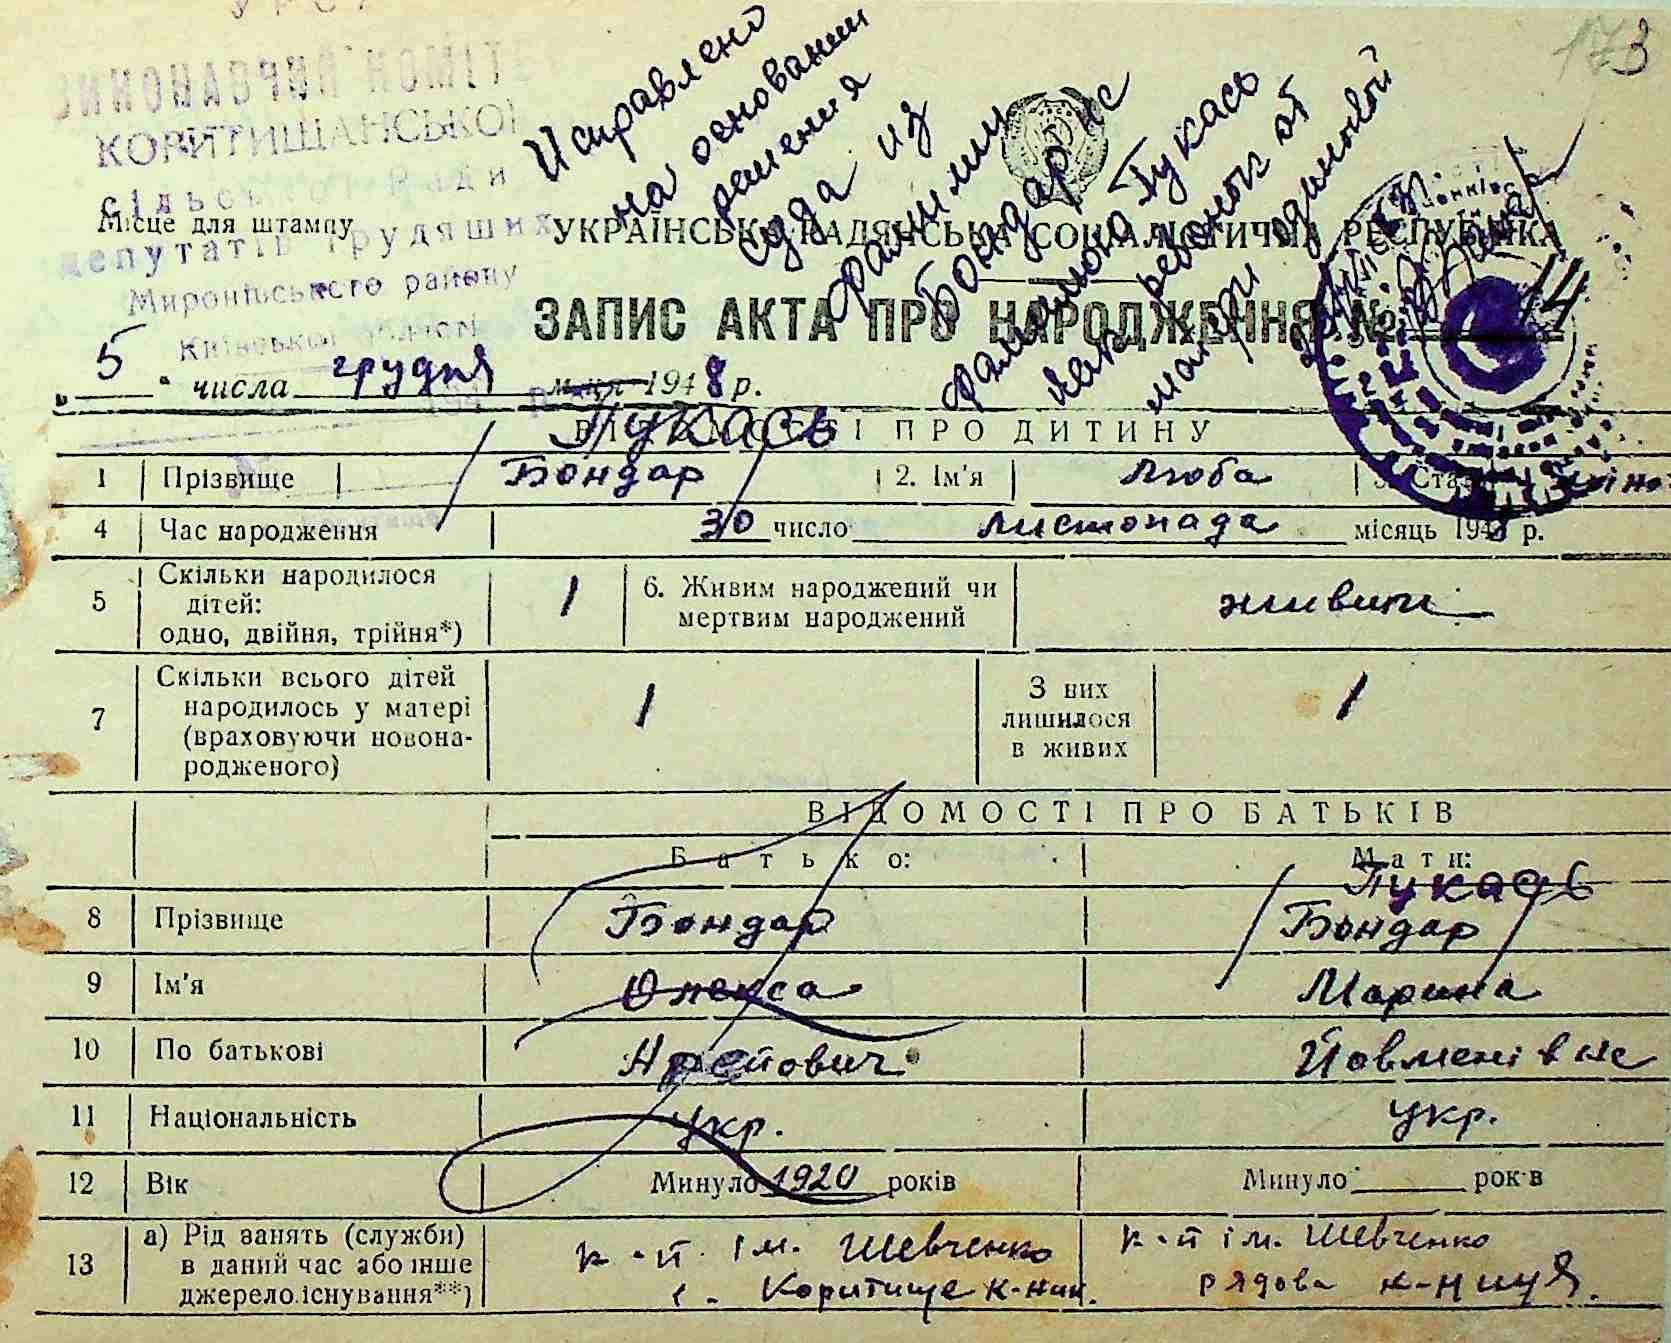 173
КОРИТИЩАНСЬКОЇ
сільської Ради
Місце для штампу
депутатів трудящих
Миронівського району
Київської області
Исправлено
на основании
решения
суда из
фамилии
Бондар на
фамилию Пукась
как ребенок от
матери одинокой
УКРАЇНСЬКА РАДЯНСЬКА СОЦІАЛІСТИЧНА РЕСПУБЛІКА
ЗАПИС АКТА ПРО НАРОДЖЕННЯ № 14
„ 5 " числа грудня м-ця 1948 р.
Пукась
ВІДОМОСТІ ПРО ДИТИНУ
1 Прізвище Бондар 2. Ім'я Люба 3. Стать жіно
4 Час народження 30 число листопада місяць 1948 р.
5 Скільки народилося дітей: одно, двійня, трійня*) 1 6. Живим народжений чи мертвим народжений живим
7 Скільки всього дітей народилось у матері (враховуючи новонародженого) 1 З них лишилося в живих 1
ВІДОМОСТІ ПРО БАТЬКІВ
Батько: Мати:
Пукась
8 Прізвище Бондар Бондар
9 Ім'я Олекса Марина
10 По батькові Йовменівне
11 Національність укр. укр.
12 Вік Минуло 1920 років Минуло років
13 а) Рід занять (служби) в даний час або інше джерело існування**) к-п ім. Шевченко
с. Коритище к-ник.
к-п ім. Шевченко
рядова к-ниця.